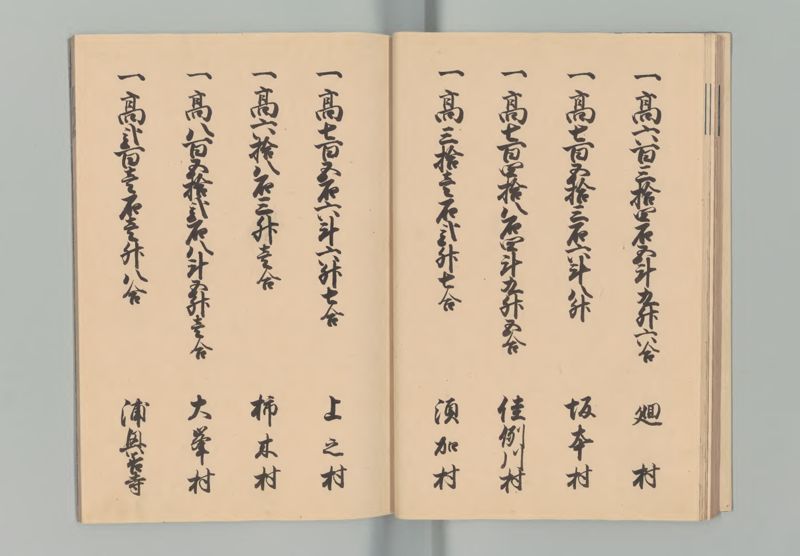 一高六百三拾四石五斗九升六合 廻村
一高七百五拾三石六斗八升 坂本村
一高七百四拾八石四斗九升五合 佳例川村
一高三拾壱石弐升七合 須加村
一高七百五石六斗六升七合 上之村
一高六拾八石三升壱合 柿木村
一高八百五拾弐石八斗五升壱合 大峯村
一高弐百壱石壱升八合 浦